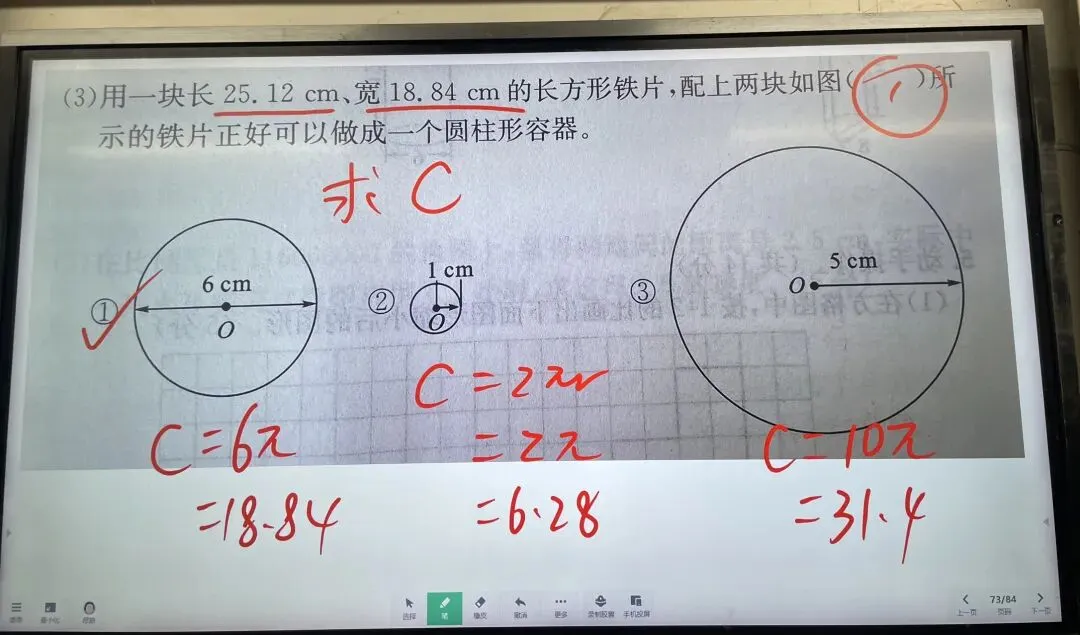 (3)用一块长 25.12 cm、宽 18.84 cm 的长方形铁片,配上两块如图( 1 )所
示的铁片正好可以做成一个圆柱形容器。
求 C
① 6 cm O
② 1 cm O
③ 5 cm O
C=6π
=18.84
C=2πr
=2π
=6.28
C=10π
=31.4
选择 笔 橡皮 撤消 更多 录制胶囊 手机投屏
上一页 73/84 页码 下一页